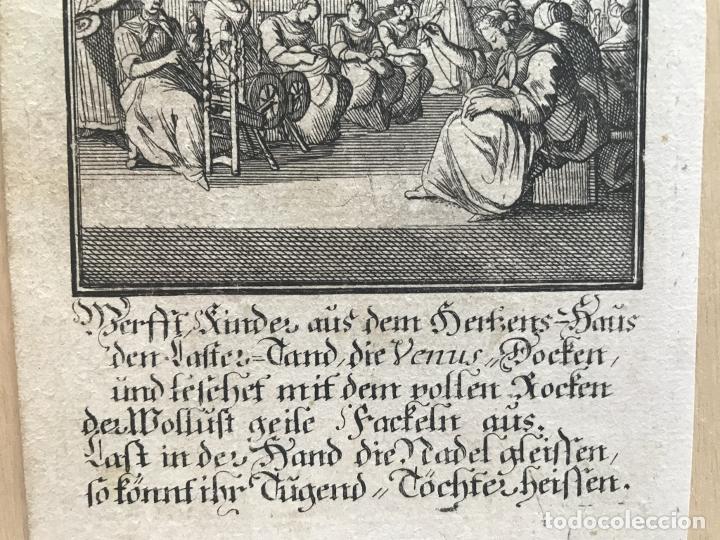 Werfft, Kinder aus dem Hertzens-Haus
den Laster-Tand, die Venus-Docken,
und leschet mit dem vollen Rocken
der Wollust geile Fackeln aus.
Last in der Hand die Nadel gleissen,
so könnt ihr Tugend-Töchter heissen.
todocoleccion